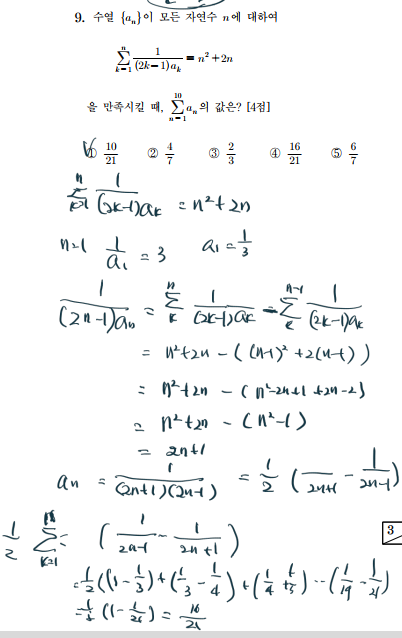 9. 수열 {aₙ}이 모든 자연수 n에 대하여
∑_{k=1}^{n} 1/((2k−1)aₖ) = n²+2n
을 만족시킬 때, ∑_{n=1}^{10} aₙ의 값은? [4점]
① 10/21 ② 4/7 ③ 2/3 ④ 16/21 ⑤ 6/7
∑_{k=1}^{n} 1/((2k-1)aₖ) = n²+2n
n=1 1/a₁ = 3 a₁ = 1/3
1/((2n-1)aₙ) = ∑_{k}^{n} 1/((2k-1)aₖ) - ∑_{k}^{n-1} 1/((2k-1)aₖ)
= n²+2n - ((n-1)² + 2(n-1))
= n²+2n - (n²-2n+1+2n-2)
= n²+2n - (n²-1)
= 2n+1
aₙ = 1/((2n+1)(2n-1)) = 1/2 ( /(2n+1) - 1/(2n-1))
1/2 ∑_{k=1} (1/(2n-1) - 1/(2n+1))
3
= 1/2 ((1-1/3) + (1/3 - 1/4) + (1/4 1/5) -- (1/19 - 1/21)
(1 - 1/21) = 10/21